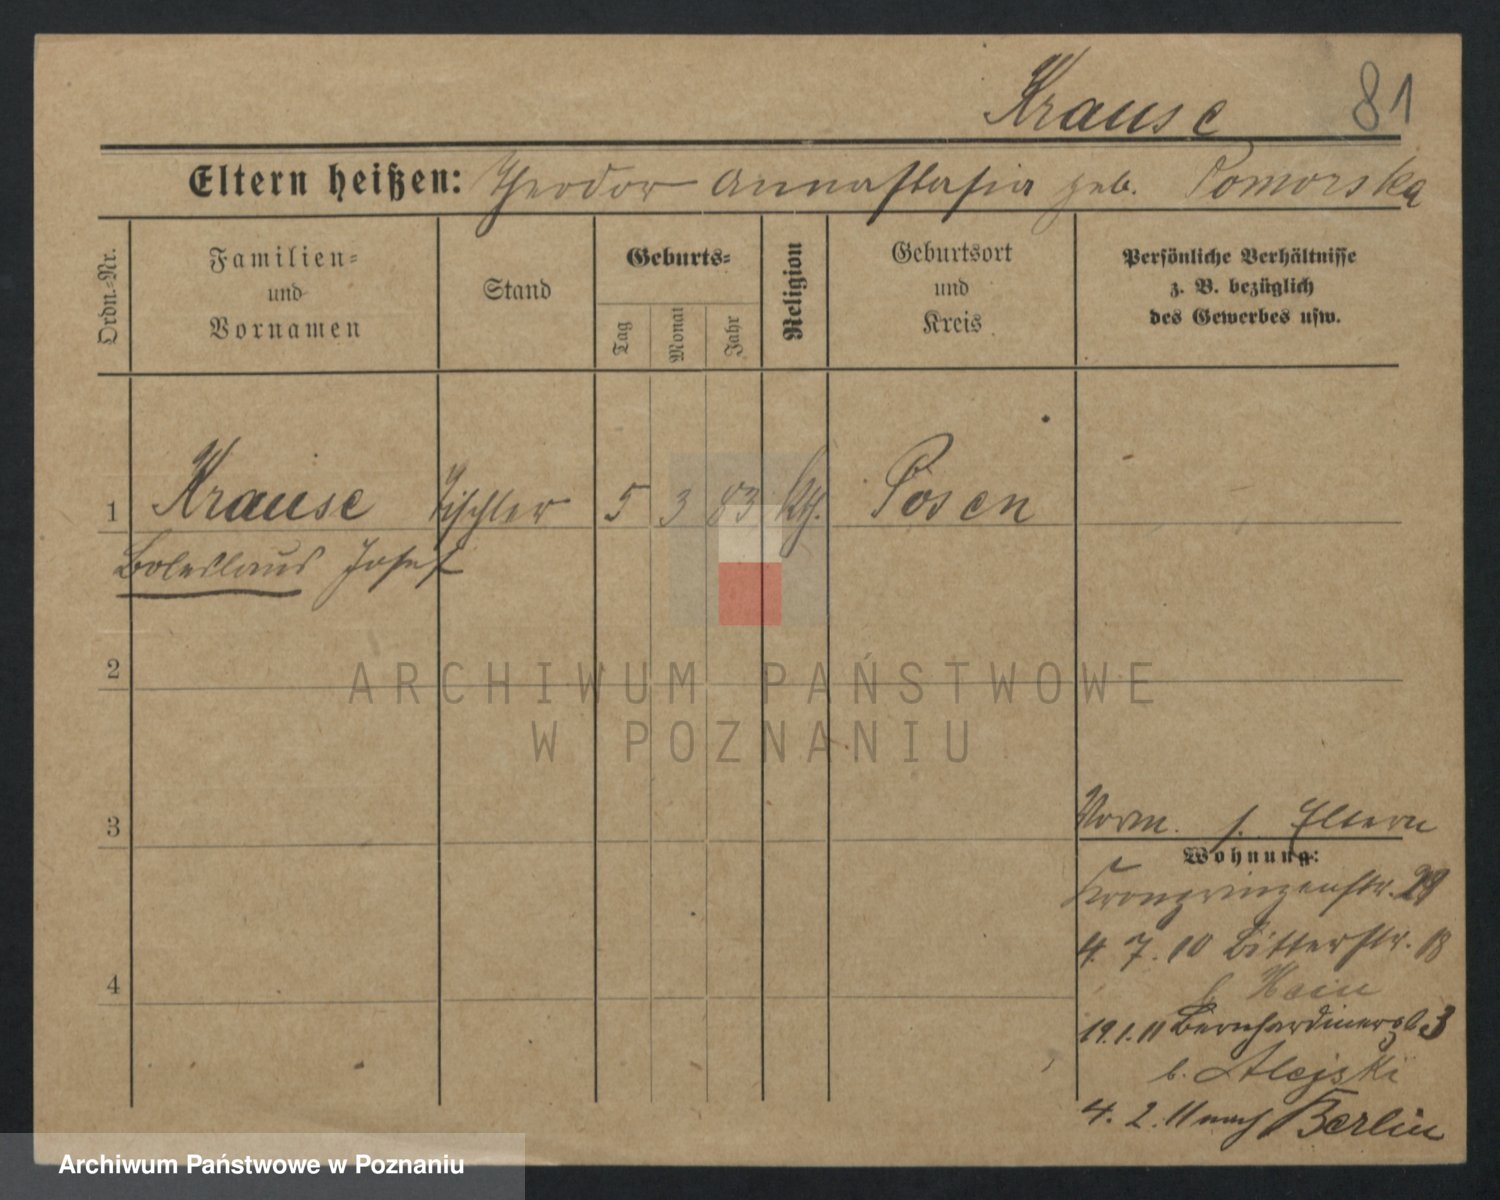 Krause 81
Eltern heißen: Theodor Annastasia geb. Pomorska
Ordn.=Nr.
Familien=
und
Vornamen
Stand
Geburts=
Tag
Monat
Jahr
Religion
Geburtsort
und
Kreis
Persönliche Verhältnisse
z. B. bezüglich
des Gewerbes usw.
1 Krause Tischler 5 3 83 Kth. Posen
Boleslaus Josef
2
3
4
Vorm. s. Eltern
Wohnung:
Kronprinzenstr.
4. 7. 10 Bitterstr. 18
b Hein
19.1.11 Bernhardinerpl. 3
b. Alejski
4. 2. 11 nach Berlin
ARCHIWUM PAŃSTWOWE
W POZNANIU
Archiwum Państwowe w Poznaniu